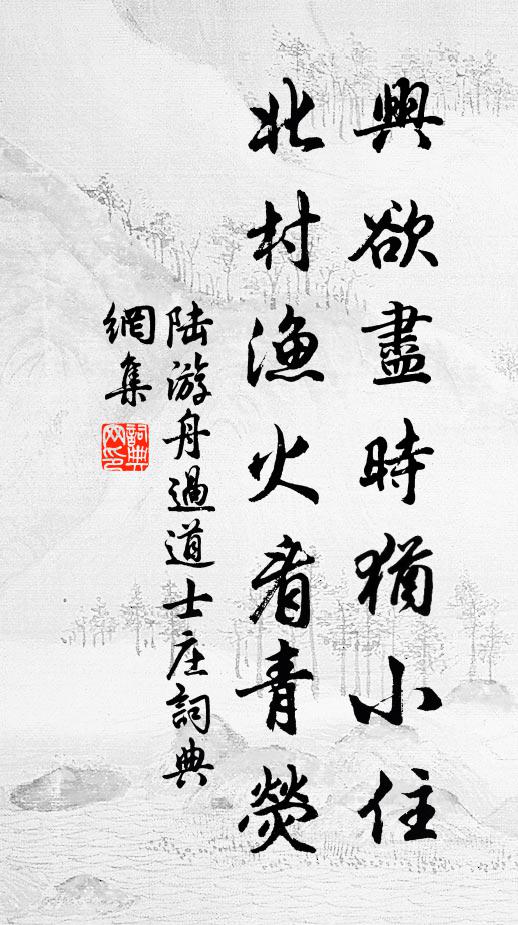 興欲盡時猶小住
北村漁火看青熒
陆游舟過道士庄詞典
網集
詞典
网印